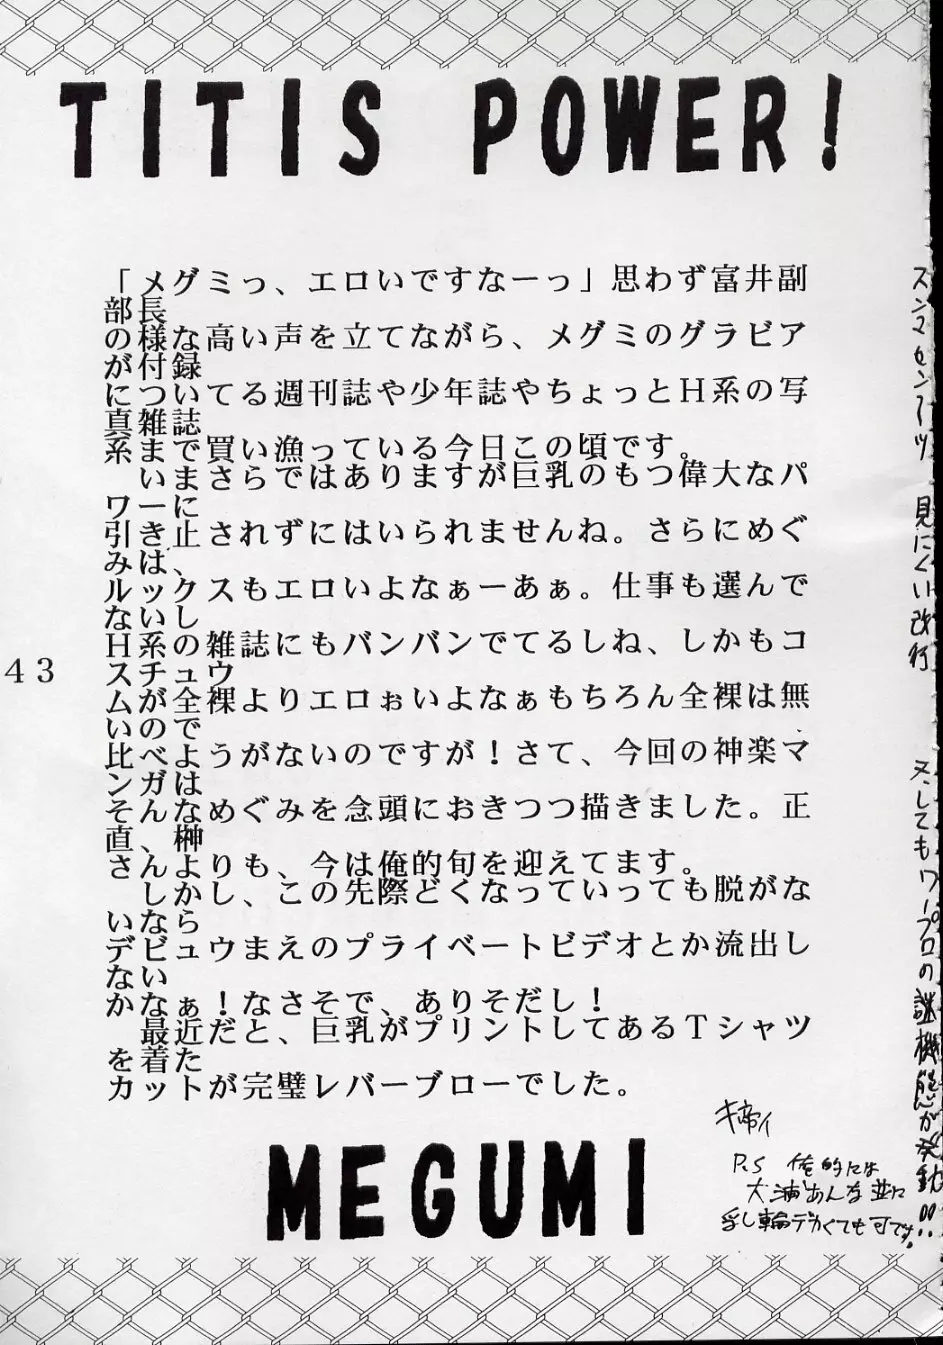 TITIS POWER!
「メグミっ、エロいですなーっ」思わず富井副
部長
の様な高い声を立てながら、メグミのグラビア
が付録
についてる週刊誌や少年誌やちょっとＨ系の写
真雑誌
系まで買い漁っている今日この頃です。
いまさらではありますが巨乳のもつ偉大なパ
ワーに
引き止されずにはいられませんね。さらにめぐ
みは、
ルックスもエロいよなぁーあぁ。仕事も選んで
ないし
Ｈ系の雑誌にもバンバンでてるしね、しかもコ
スチュウ
ムが全裸よりエロぉいよなぁもちろん全裸は無
いので
比べようがないのですが！さて、今回の神楽マ
ンガは
そんなめぐみを念頭におきつつ描きました。正
直、榊
さんよりも、今は俺的旬を迎えてます。
しかし、この先際どくなっていっても脱がな
いなら
デビュウまえのプライベートビデオとか流出し
ない
かなぁ！なさそで、ありそだし！
最近だと、巨乳がプリントしてあるＴシャツ
を着た
カットが完璧レバーブローでした。
P.S 俺的には
大浦あんな並に
乳し輪デカくても可です。
MEGUMI
43
スンマセンアーツ 見にくい改行
又してもワープロの謎機能が発動!!